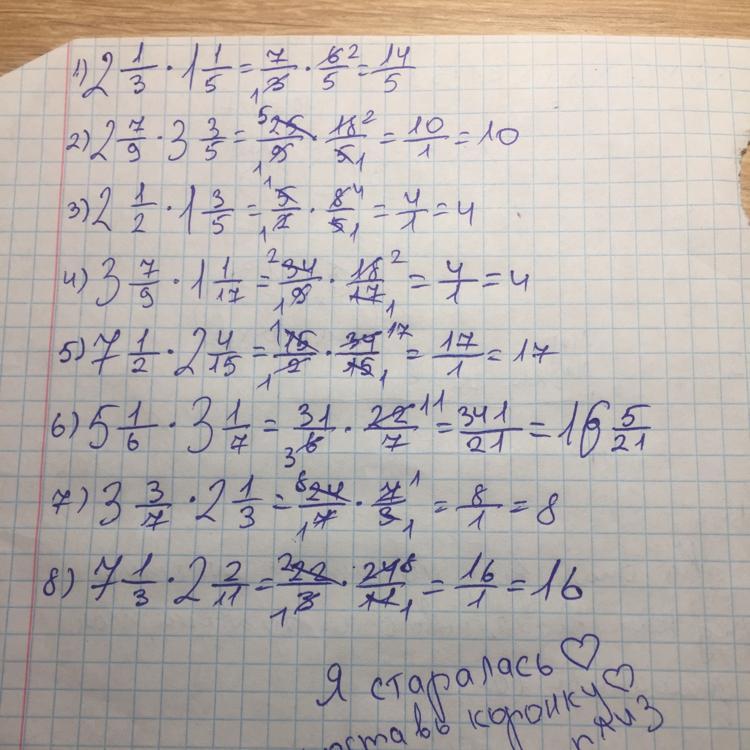 1) 2 1/3 · 1 1/5 = 7/3 1 · 6 2/5 = 14/5
2) 2 7/9 · 3 3/5 = 5 25/9 1 · 18 2/5 1 = 10/1 = 10
3) 2 1/2 · 1 3/5 = 1 5/2 1 · 8 4/5 1 = 4/1 = 4
4) 3 7/9 · 1 1/17 = 2 34/9 1 · 18 2/17 1 = 4/1 = 4
5) 7 1/2 · 2 4/15 = 1 15/2 1 · 34 17/15 1 = 17/1 = 17
6) 5 1/6 · 3 1/7 = 31/6 3 · 22 11/7 = 341/21 = 16 5/21
7) 3 3/7 · 2 1/3 = 8 24/7 1 · 7 1/3 1 = 8/1 = 8
8) 7 1/3 · 2 2/11 = 2 22/3 1 · 24 8/11 1 = 16/1 = 16
Я старалась ♡
коронку ♡